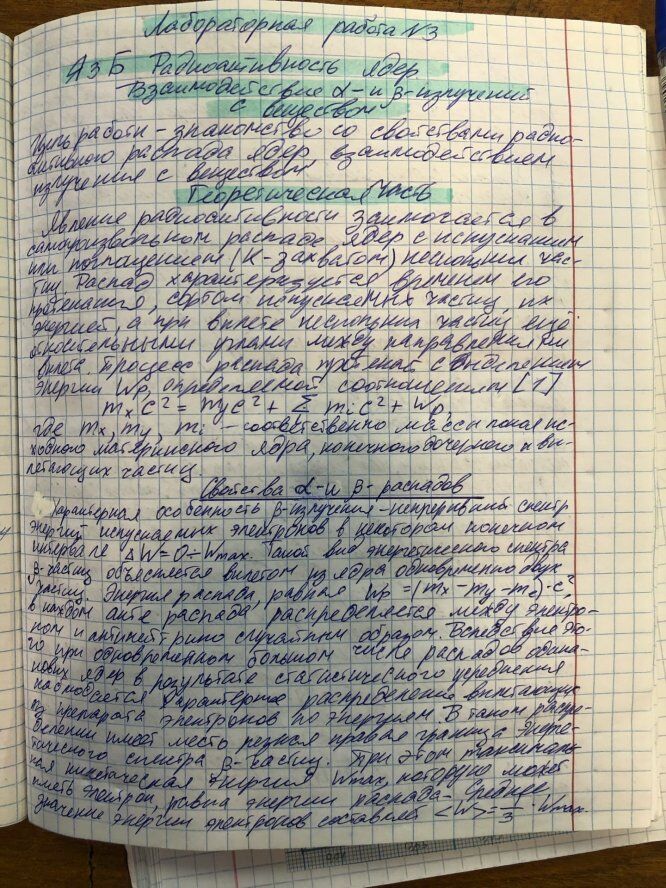 Лабораторная работа №3
А3Б Радиоактивность ядер
Взаимодействие α- и β-излучений
с веществом
Цель работы - знакомство со свойствами радио-
активного распада ядер взаимодействием
излучения с веществом
Теоретическая часть
Явление радиоактивности заключается в
самопроизвольном распаде ядер с испусканием
или поглощением (К-захватом) нескольких час-
тиц. Распад характеризуется временем его
протекания, сортом испускаемых частиц, их
энергией, а при вылете нескольких частиц ещё
относительными углами между направлениями
вылета. Процесс распада протекает с выделением
энергии Wр, определяемой соотношением [1]
mₓc² = m_yc² + Σ mᵢc² + Wр,
где mₓ, m_y, mᵢ - соответственно массы покоя ис-
ходного материнского ядра, конечного дочернего и вы-
летающих частиц
Свойства α- и β-распадов
Характерная особенность β-излучения - непрерывный спектр
энергий испускаемых электронов в некотором конечном
интервале ΔW=0÷Wmax. Такой вид энергетического спектра
β-частиц объясняется вылетом из ядра одновременно двух
частиц. Энергия распада, равная Wр = (mₓ - m_y - mₑ)·c²,
в каждом акте распада распределяется между электро-
ном и антинейтрино случайным образом. Вследствие это-
го при одновременном большом числе распадов одина-
ковых ядер в результате статистического усреднения
наблюдается характерное распределение вылетающих
из препарата электронов по энергиям. В таком распре-
делении имеет место резкая правая граница энерге-
тического спектра β-частиц. При этом максималь-
ная кинетическая энергия Wmax, которую может
иметь электрон, равна энергии распада. Среднее
значение энергии электронов составляет <W> = 1/3 · Wmax.